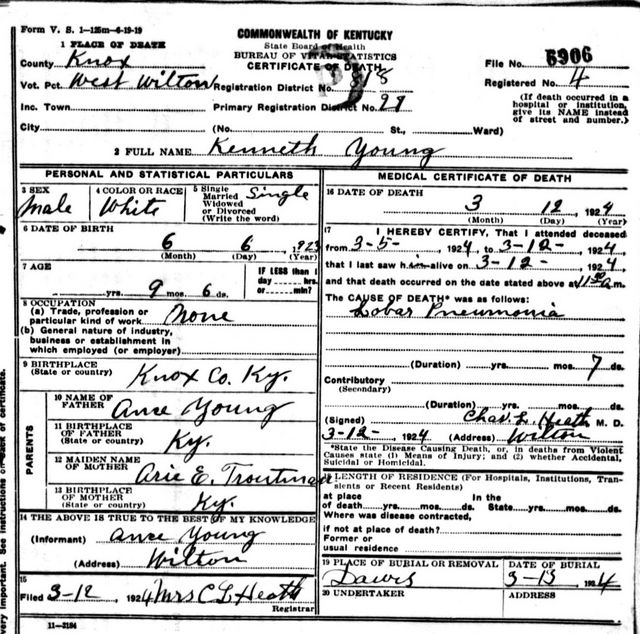 Form V. S. 1—125m—6-19-19
COMMONWEALTH OF KENTUCKY
State Board of Health
BUREAU OF VITAL STATISTICS
CERTIFICATE OF DEATH
1 PLACE OF DEATH
County Knox
File No. 6906
Vot. Pct. West Wilton Registration District No. 818
Registered No. 4
Inc. Town Primary Registration District No.
(If death occurred in a hospital or institution, give its NAME instead of street and number.)
City (No. St., Ward)
2 FULL NAME Kenneth Young
PERSONAL AND STATISTICAL PARTICULARS
3 SEX
Male
4 COLOR OR RACE
White
5 Single
Married
Widowed
or Divorced
(Write the word)
Single
6 DATE OF BIRTH
6 6 1923
(Month) (Day) (Year)
7 AGE
yrs. 9 mos. 6 ds.
IF LESS than 1
day hrs.
or min?
8 OCCUPATION
(a) Trade, profession or
particular kind of work None
(b) General nature of industry,
business or establishment in
which employed (or employer)
9 BIRTHPLACE
(State or country) Knox Co. Ky.
PARENTS
10 NAME OF
FATHER Ance Young
11 BIRTHPLACE
OF FATHER
(State or country) Ky.
12 MAIDEN NAME
OF MOTHER Arie E. Troutman
13 BIRTHPLACE
OF MOTHER
(State or country) Ky.
14 THE ABOVE IS TRUE TO THE BEST OF MY KNOWLEDGE
(Informant) Ance Young
(Address) Wilton
15
Filed 3-12 1924 Mrs C L Heath
Registrar
11—3184
MEDICAL CERTIFICATE OF DEATH
16 DATE OF DEATH
3 12 1924
(Month) (Day) (Year)
17 I HEREBY CERTIFY, That I attended deceased
from 3-5- 1924, to 3-12- 1924,
that I last saw him alive on 3-12- 1924
and that death occurred on the date stated above at m.
The CAUSE OF DEATH* was as follows:
Lobar Pneumonia
(Duration) yrs. mos. 7 ds.
Contributory
(Secondary)
(Duration) yrs. mos. ds.
(Signed) Chas. L. Heath M. D.
3-12- 1924 (Address) Wilton
*State the Disease Causing Death, or, in deaths from Violent
Causes state (1) Means of Injury; and (2) whether Accidental,
Suicidal or Homicidal.
LENGTH OF RESIDENCE (For Hospitals, Institutions, Tran-
sients or Recent Residents)
at place In the
of death yrs. mos. ds. State yrs. mos. ds.
Where was disease contracted,
if not at place of death?
Former or
usual residence
19 PLACE OF BURIAL OR REMOVAL
DATE OF BURIAL
3-13 1924
20 UNDERTAKER
ADDRESS